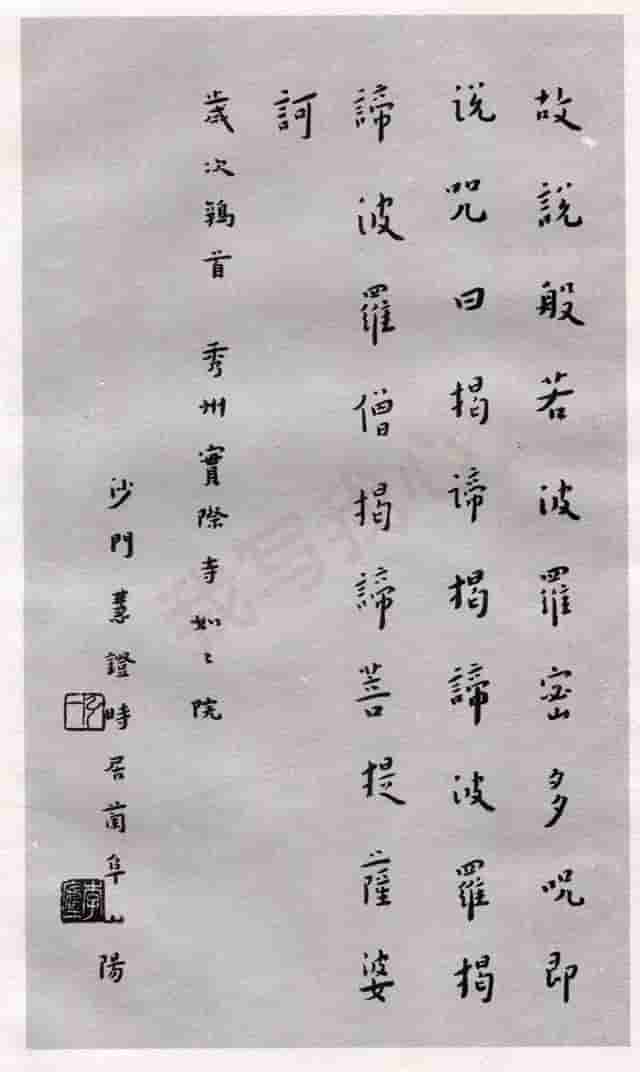 故說般若波羅密多呪即
说咒曰揭諦揭諦波羅揭
諦波羅僧揭諦菩提薩婆
訶
歲次鶉首 秀州實際寺如〻院
沙門慧證時居蘭阜山陽